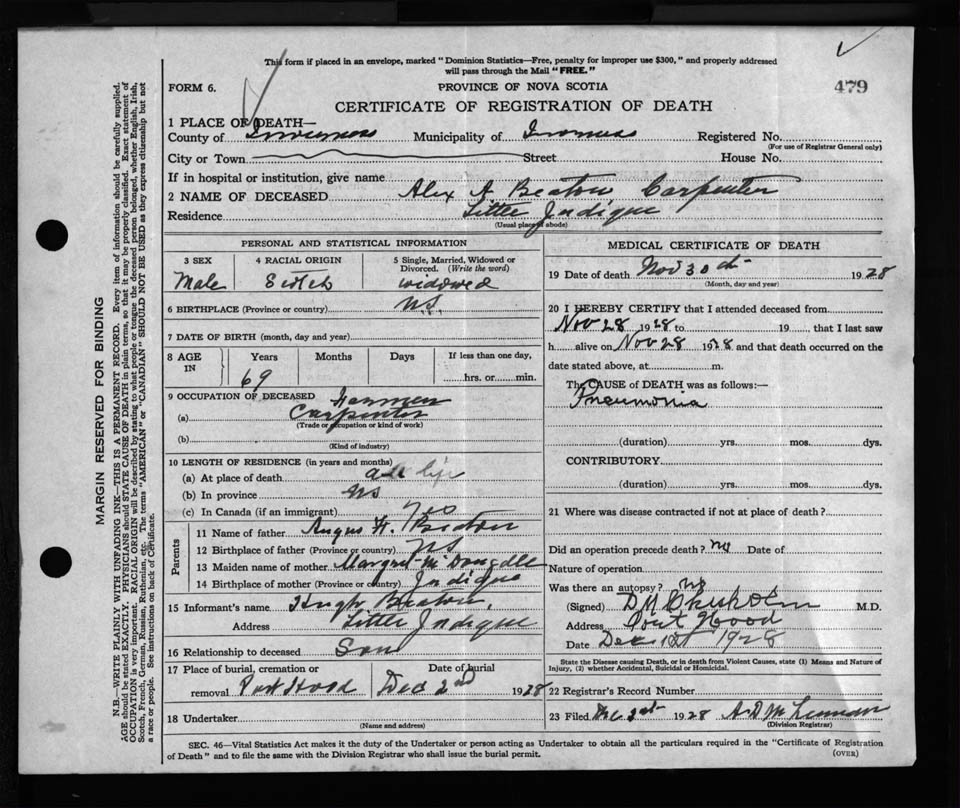 This form if placed in an envelope, marked "Dominion Statistics—Free, penalty for improper use $300," and properly addressed
will pass through the Mail "FREE."
479
FORM 6.
PROVINCE OF NOVA SCOTIA
CERTIFICATE OF REGISTRATION OF DEATH
1 PLACE OF DEATH—
County of Inverness Municipality of Inverness Registered No.
(For use of Registrar General only)
City or Town Street House No.
If in hospital or institution, give name
2 NAME OF DECEASED Alex A Beaton Carpenter
Residence Little Judique
(Usual place of abode)
PERSONAL AND STATISTICAL INFORMATION
3 SEX 4 RACIAL ORIGIN 5 Single, Married, Widowed or
Divorced. (Write the word)
Male Scotch widowed
6 BIRTHPLACE (Province or country) N.S.
7 DATE OF BIRTH (month, day and year)
8 AGE IN Years Months Days If less than one day,
69 hrs. or min.
9 OCCUPATION OF DECEASED
(a) Carpenter
(Trade or occupation or kind of work)
(b)
(Kind of industry)
10 LENGTH OF RESIDENCE (in years and months)
(a) At place of death all life
(b) In province NS
(c) In Canada (if an immigrant) Yes
Parents
11 Name of father Angus Beaton
12 Birthplace of father (Province or country) NS
13 Maiden name of mother Margret
14 Birthplace of mother (Province or country) Judique
15 Informant's name Hugh Beaton,
Address Little Judique
16 Relationship to deceased Son
17 Place of burial, cremation or Date of burial
removal Port Hood Dec 2nd 1928
18 Undertaker
(Name and address)
MEDICAL CERTIFICATE OF DEATH
19 Date of death Nov 30th 1928
(Month, day and year)
20 I HEREBY CERTIFY that I attended deceased from
Nov 28 1928 to 19 that I last saw
h alive on Nov 28 1928 and that death occurred on the
date stated above, at m.
The CAUSE of DEATH was as follows:—
Pneumonia
(duration) yrs. mos. dys.
CONTRIBUTORY
(duration) yrs. mos. dys.
21 Where was disease contracted if not at place of death?
Did an operation precede death? no Date of
Nature of operation
Was there an autopsy? no
(Signed) D M Chisholm M.D.
Address Port Hood
Date Dec 1st 1928
State the Disease causing Death, or in death from Violent Causes, state (1) Means and Nature of
Injury, (2) whether Accidental, Suicidal or Homicidal.
22 Registrar's Record Number
23 Filed Dec 1928
(Division Registrar)
SEC. 46—Vital Statistics Act makes it the duty of the Undertaker or person acting as Undertaker to obtain all the particulars required in the "Certificate of Registration
of Death" and to file the same with the Division Registrar who shall issue the burial permit.
(OVER)
MARGIN RESERVED FOR BINDING
N.B.—WRITE PLAINLY WITH UNFADING INK—THIS IS A PERMANENT RECORD. Every item of information should be carefully supplied.
AGE should be stated EXACTLY. PHYSICIANS should STATE CAUSE OF DEATH in plain terms, so that it may be properly classified. Exact statement of
OCCUPATION is very important. RACIAL ORIGIN will be described by stating to what people or tongue the deceased person belonged, whether English, Irish,
Scotch, French, German, Russian, Ruthenian, etc. The terms "AMERICAN" or "CANADIAN" SHOULD NOT BE USED as they express citizenship but not
a race or people. See instructions on back of Certificate.